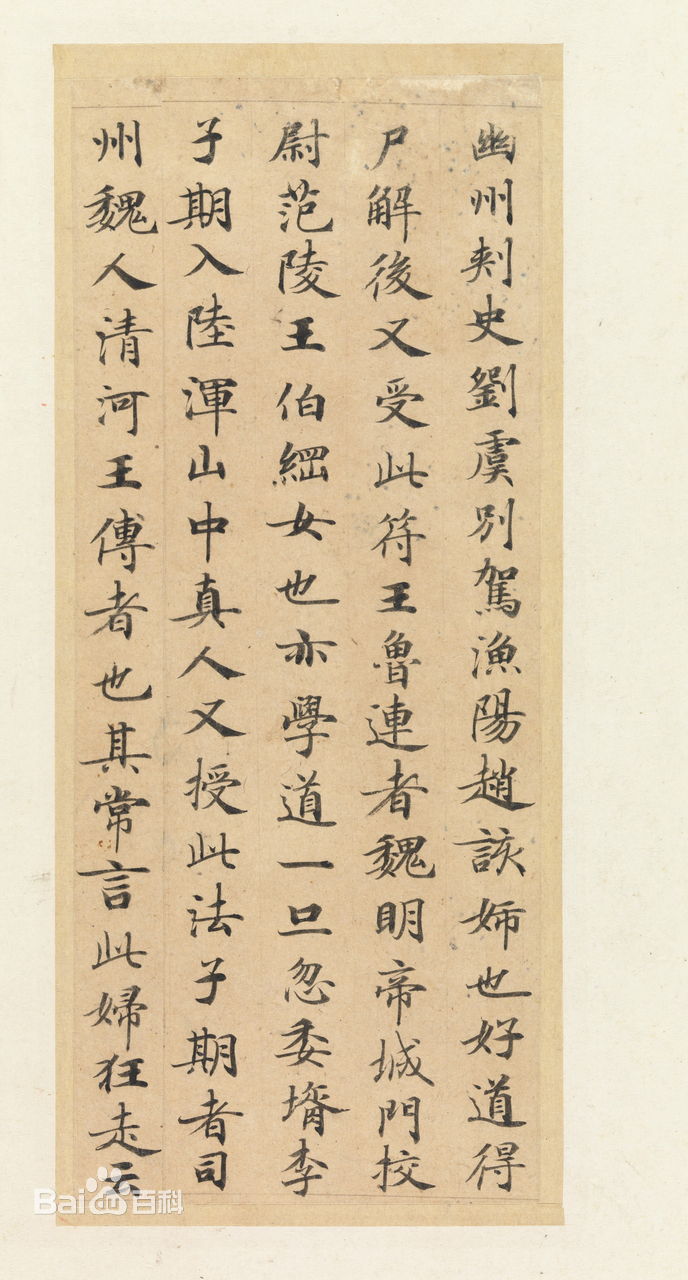 幽州刾史劉虞別駕漁陽趙該姉也好道得
尸解後又受此符王魯連者魏明帝城門校
尉范陵王伯綱女也亦學道一旦忽委壻李
子期入陸渾山中真人又授此法子期者司
州魏人清河王傅者也其常言此婦狂走云
Bai百科